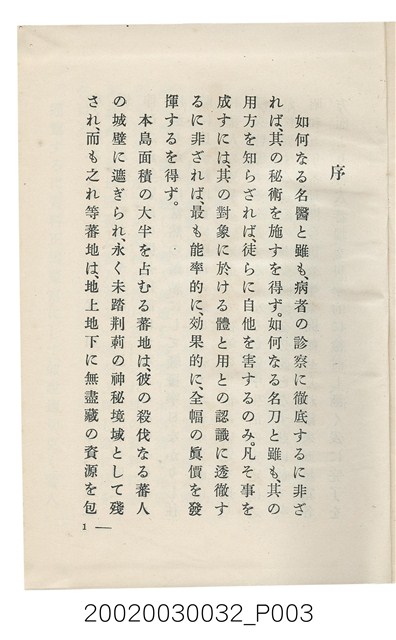 序
如何なる名醫と雖も、病者の診察に徹底するに非ざ
れば、其の秘術を施すを得ず。如何なる名刀と雖も、其の
用方を知らざれば、徒らに自他を害するのみ。凡そ事を
成すには、其の對象に於ける體と用との認識に透徹す
るに非ざれば、最も能率的に、効果的に、全幅の眞價を發
揮するを得ず。
本島面積の大半を占むる蕃地は、彼の殺伐なる蕃人
の城壁に遮ぎられ、永く未踏荆莿の神秘境域として殘
され、而も之れ等蕃地は、地上地下に無盡藏の資源を包
1 —
20020030032_P003